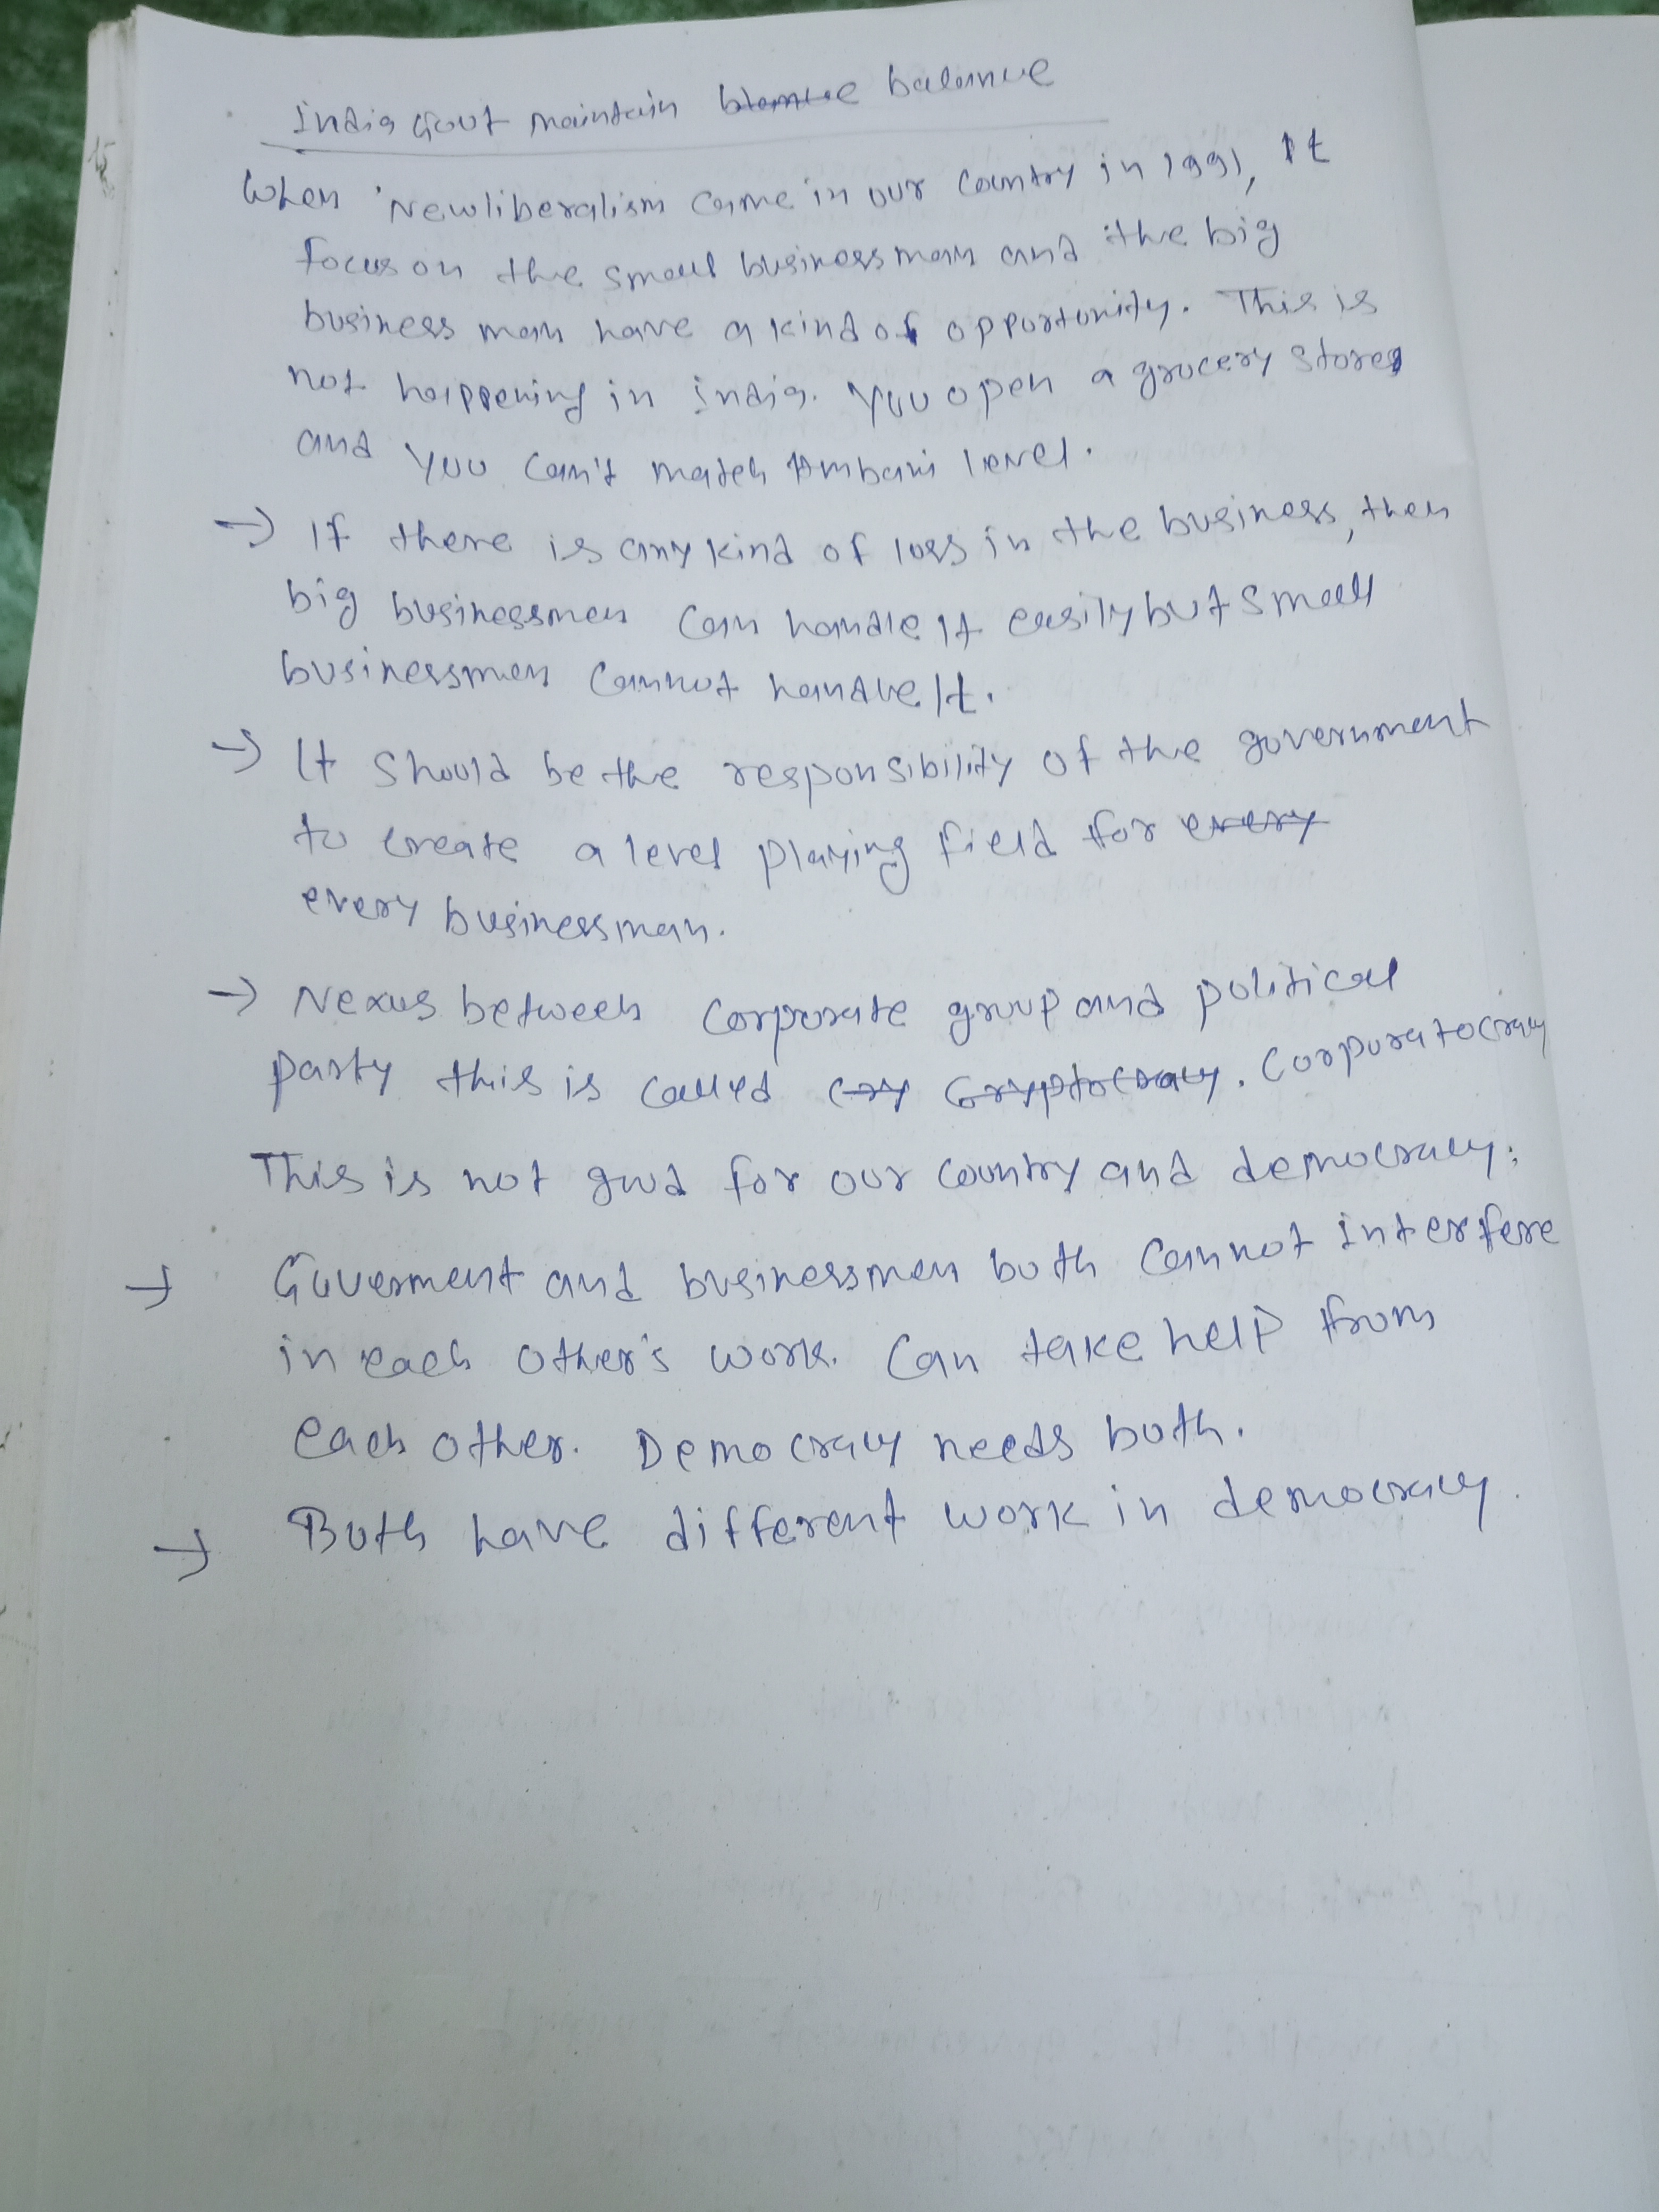 India Govt maintain balance
When Newliberalism came in our country in 1991, It
focus on the small businessman and the big
business man have a kind of opportunity. This is
not happening in India. You open a grocery stores
and you can't match Ambani level.
→ If there is any kind of loss in the business, then
big businessmen can handle it easily but small
businessmen cannot handle It.
→ It should be the responsibility of the government
to create a level playing field for every
every businessman.
→ Nexus between corporate group and political
party this is called cry Cryptocracy. Corporatocracy
This is not good for our country and democracy.
→ Goverment and businessmen both cannot interfere
in each other's work. Can take help from
each other. Democracy needs both.
→ Both have different work in democracy.